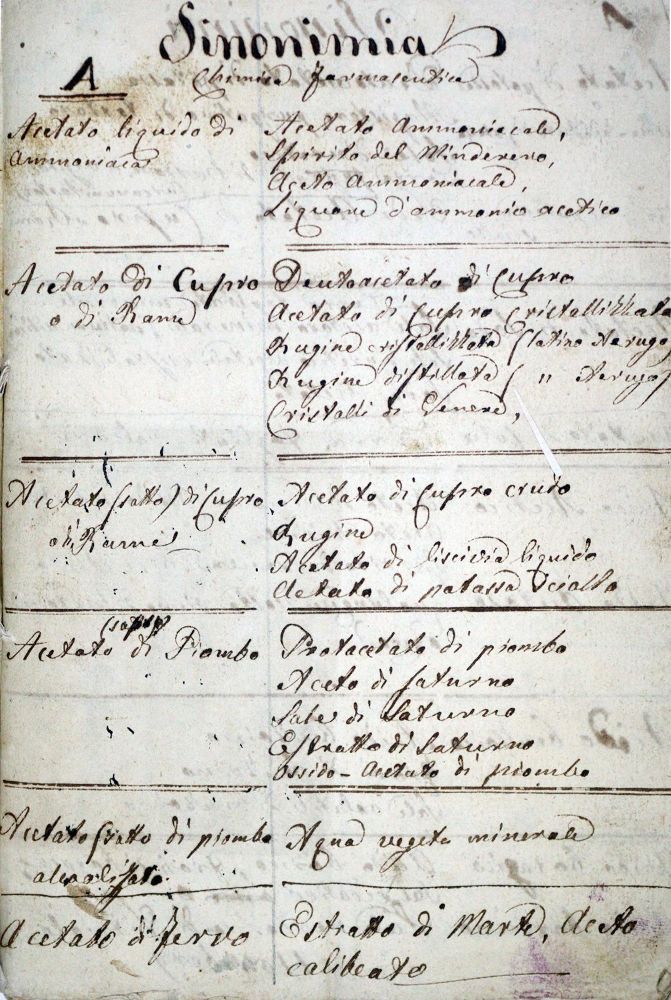 Sinonimia
A
Chimica Farmaceutica
Acetato liquido di
Ammoniaca
Acetato Ammoniacale,
Spirito del Minderero,
Aceto Ammoniacale,
Liquore d'ammonio acetico
Acetato di Cupro
o di Rame
Deutoacetato di Cupro
Acetato di Cupro Cristallizzata
Rugine cristallizzata (latino Aerugo
Rugine distillata ( " Aerugo)
Cristalli di Venere,
Acetato (sotto) di Cupro
o di Rame
Acetato di Cupro crudo
Rugine
Acetato di liscivia liquido
Acetato di potassa sciolto
(sopra)
Acetato di Piombo
Protacetato di piombo
Aceto di saturno
Sale di Saturno
Estratto di Saturno
Ossido-Acetato di piombo
Acetato (sotto di piombo
Aqua vegeto minerale
Acetato di Ferro
Estratto di Marte, Aceto
calibeato